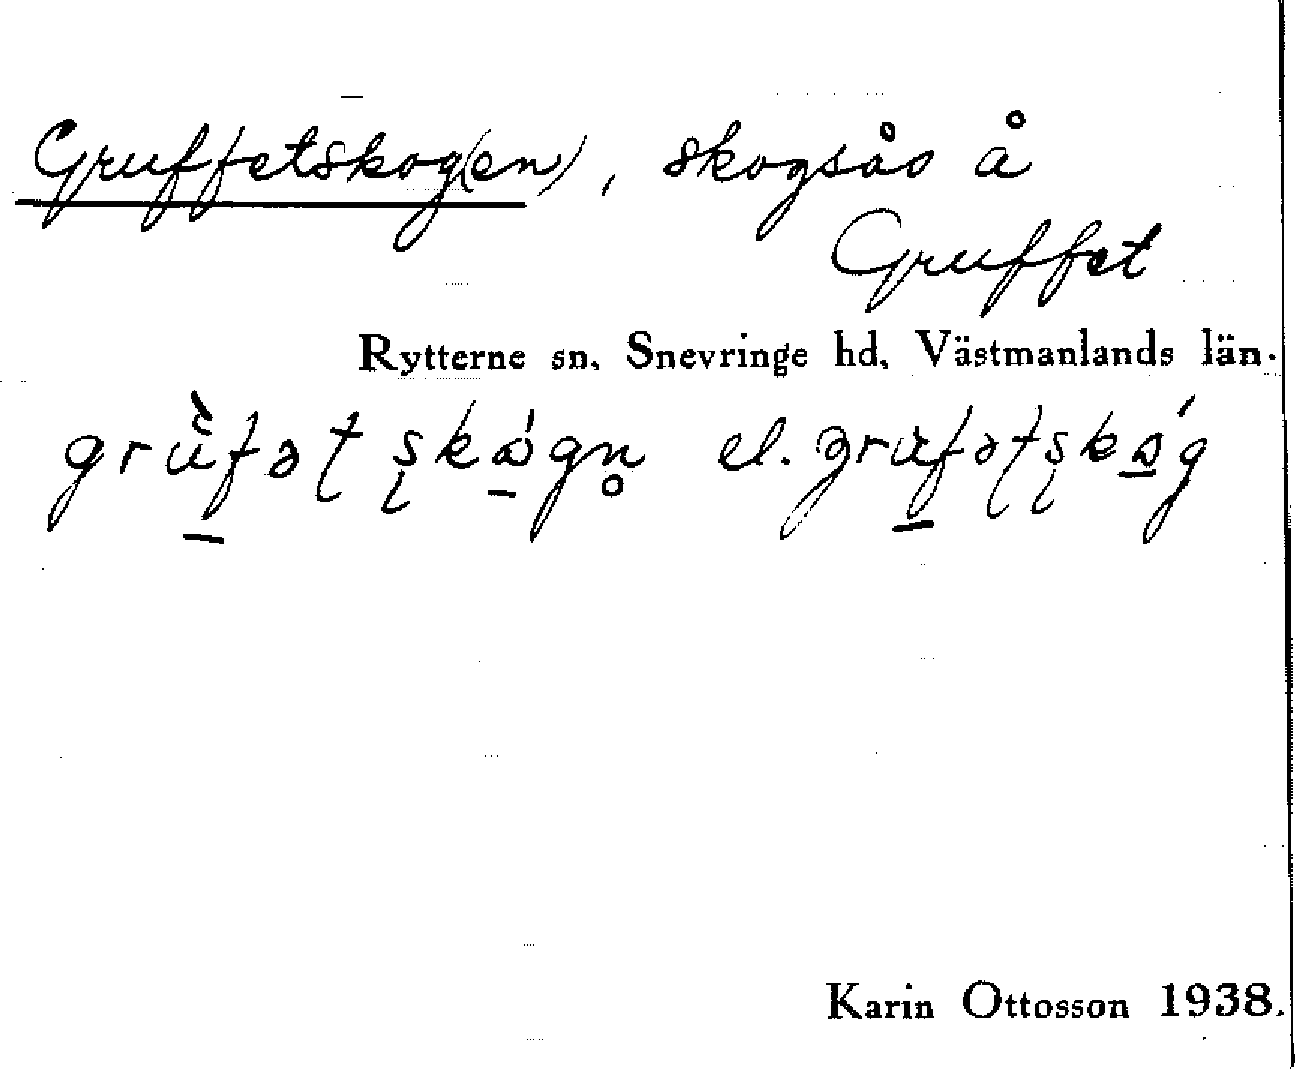 Gruffetskog(en), skogsås å
Gruffet
Rytterne sn. Snevringe hd. Västmanlands län.
el.
Karin Ottosson 1938.